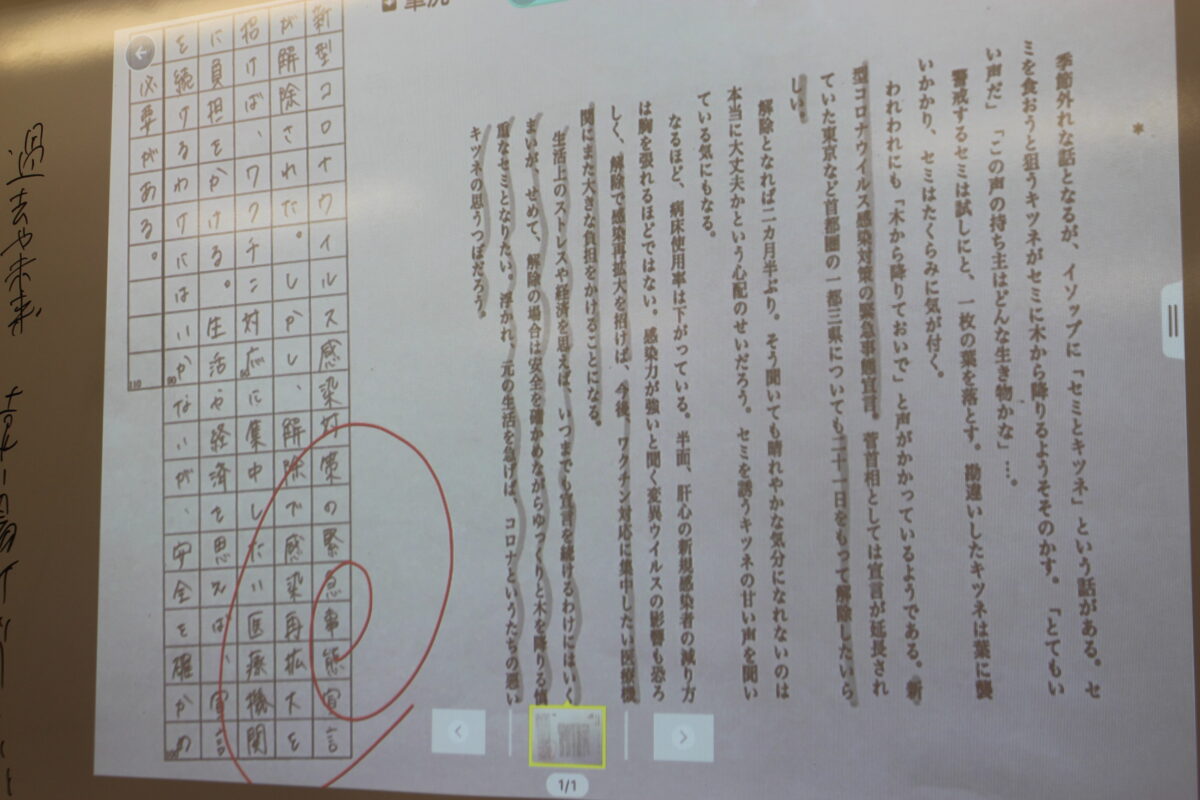 *
季節外れな話となるが、イソップに「セミとキツネ」という話がある。セ
ミを食おうと狙うキツネがセミに木から降りるようそそのかす。「とてもい
い声だ」「この声の持ち主はどんな生き物かな」…。
警戒するセミは試しにと、一枚の葉を落とす。勘違いしたキツネは葉に襲
いかかり、セミはたくらみに気が付く。
われわれにも「木から降りておいで」と声がかかっているようである。新
型コロナウイルス感染対策の緊急事態宣言。菅首相としては宣言が延長され
ていた東京など首都圏の一都三県についても二十一日をもって解除したいら
しい。
解除となれば二カ月半ぶり。そう聞いても晴れやかな気分になれないのは
本当に大丈夫かという心配のせいだろう。セミを誘うキツネの甘い声を聞い
ている気にもなる。
なるほど、病床使用率は下がっている。半面、肝心の新規感染者の減り方
は胸を張れるほどではない。感染力が強いと聞く変異ウイルスの影響も恐ろ
しく、解除で感染再拡大を招けば、今後、ワクチン対応に集中したい医療機
関にまた大きな負担をかけることになる。
生活上のストレスや経済を思えば、いつまでも宣言を続けるわけにはいく
まいが、せめて、解除の場合は安全を確かめながらゆっくりと木を降りる慎
重なセミとなりたい。浮かれ、元の生活を急げば、コロナというたちの悪い
キツネの思うつぼだろう。
新型コロナウイルス感染対策の緊急事態宣言
が解除された。しかし、解除で感染再拡大を
招けば、ワクチン対応に集中したい医療機関
に負担をかける。生活や経済を思えば、宣言
を続けるわけにはいかないが、安全を確かめ
る必要がある。
過去や未来
1/1